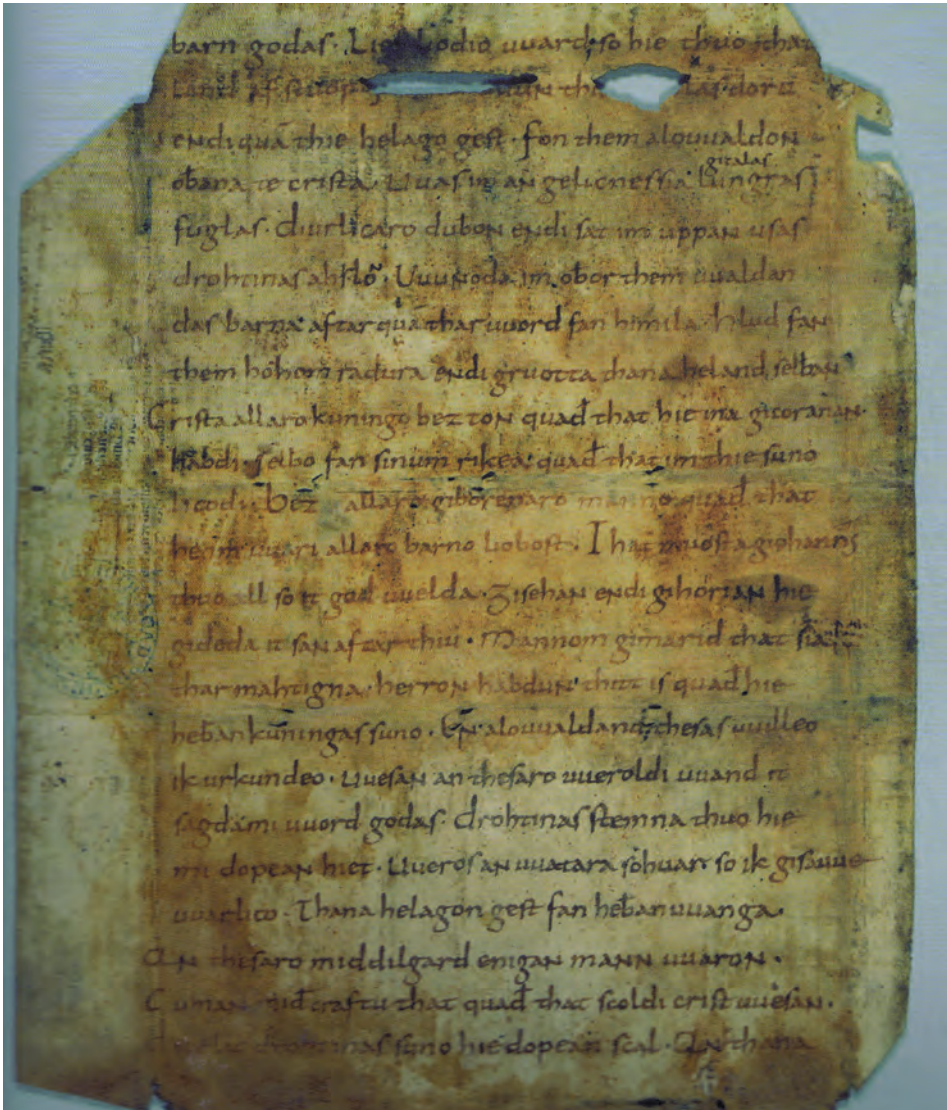 barn godas· Liof liodio uuard· so hie thuo that
land af stop thu las· doru
endi quā thie helago gest· fon them alouualdon
oƀana te crista· Uuas im an gelicnessia lungras
gitalas
fuglas· diurlicaro dubon endi sat im uppan usas
drohtinas ahslō· Uuunoda im oƀor them uualdan
das barna· aftar quā thar uuord fan himila· hlud fan
them hohom radura endi gruotta thana heland selƀan
Crista allaro kuningo bezton quađ that hie ina gicoranan·
habdi· selbo fan sinum rikea· quađ that im thie suno
licodi· bez allaro giborenaro manno quađ that
he im uuari allaro barno lioƀost· That muosta giohannes
thuo all so it god uuelda· Gisehan endi gihorian hie
gideda it san aftar thiu· Mannom gimarid that sia
thar mahtigna· herron habdun· thitt is quađ hie
heƀankuningas suno· En alouualdand· thesas uuilleo
ik urkundeo· uuesan an thesaro uueroldi uuand it
sagda mi uuord godas· drohtinas stemna thuo hie
mi dopean hiet· Uueros an uuatara so huar so ik gisauue
uuarlico· Thana helagon gest fan heƀanuuanga·
An thesaro middilgard enigan mann uuaron·
Cuman mid craftu that quađ that scoldi crist uuesan·
diurlic drohtinas suno hie dopean scal· An thana